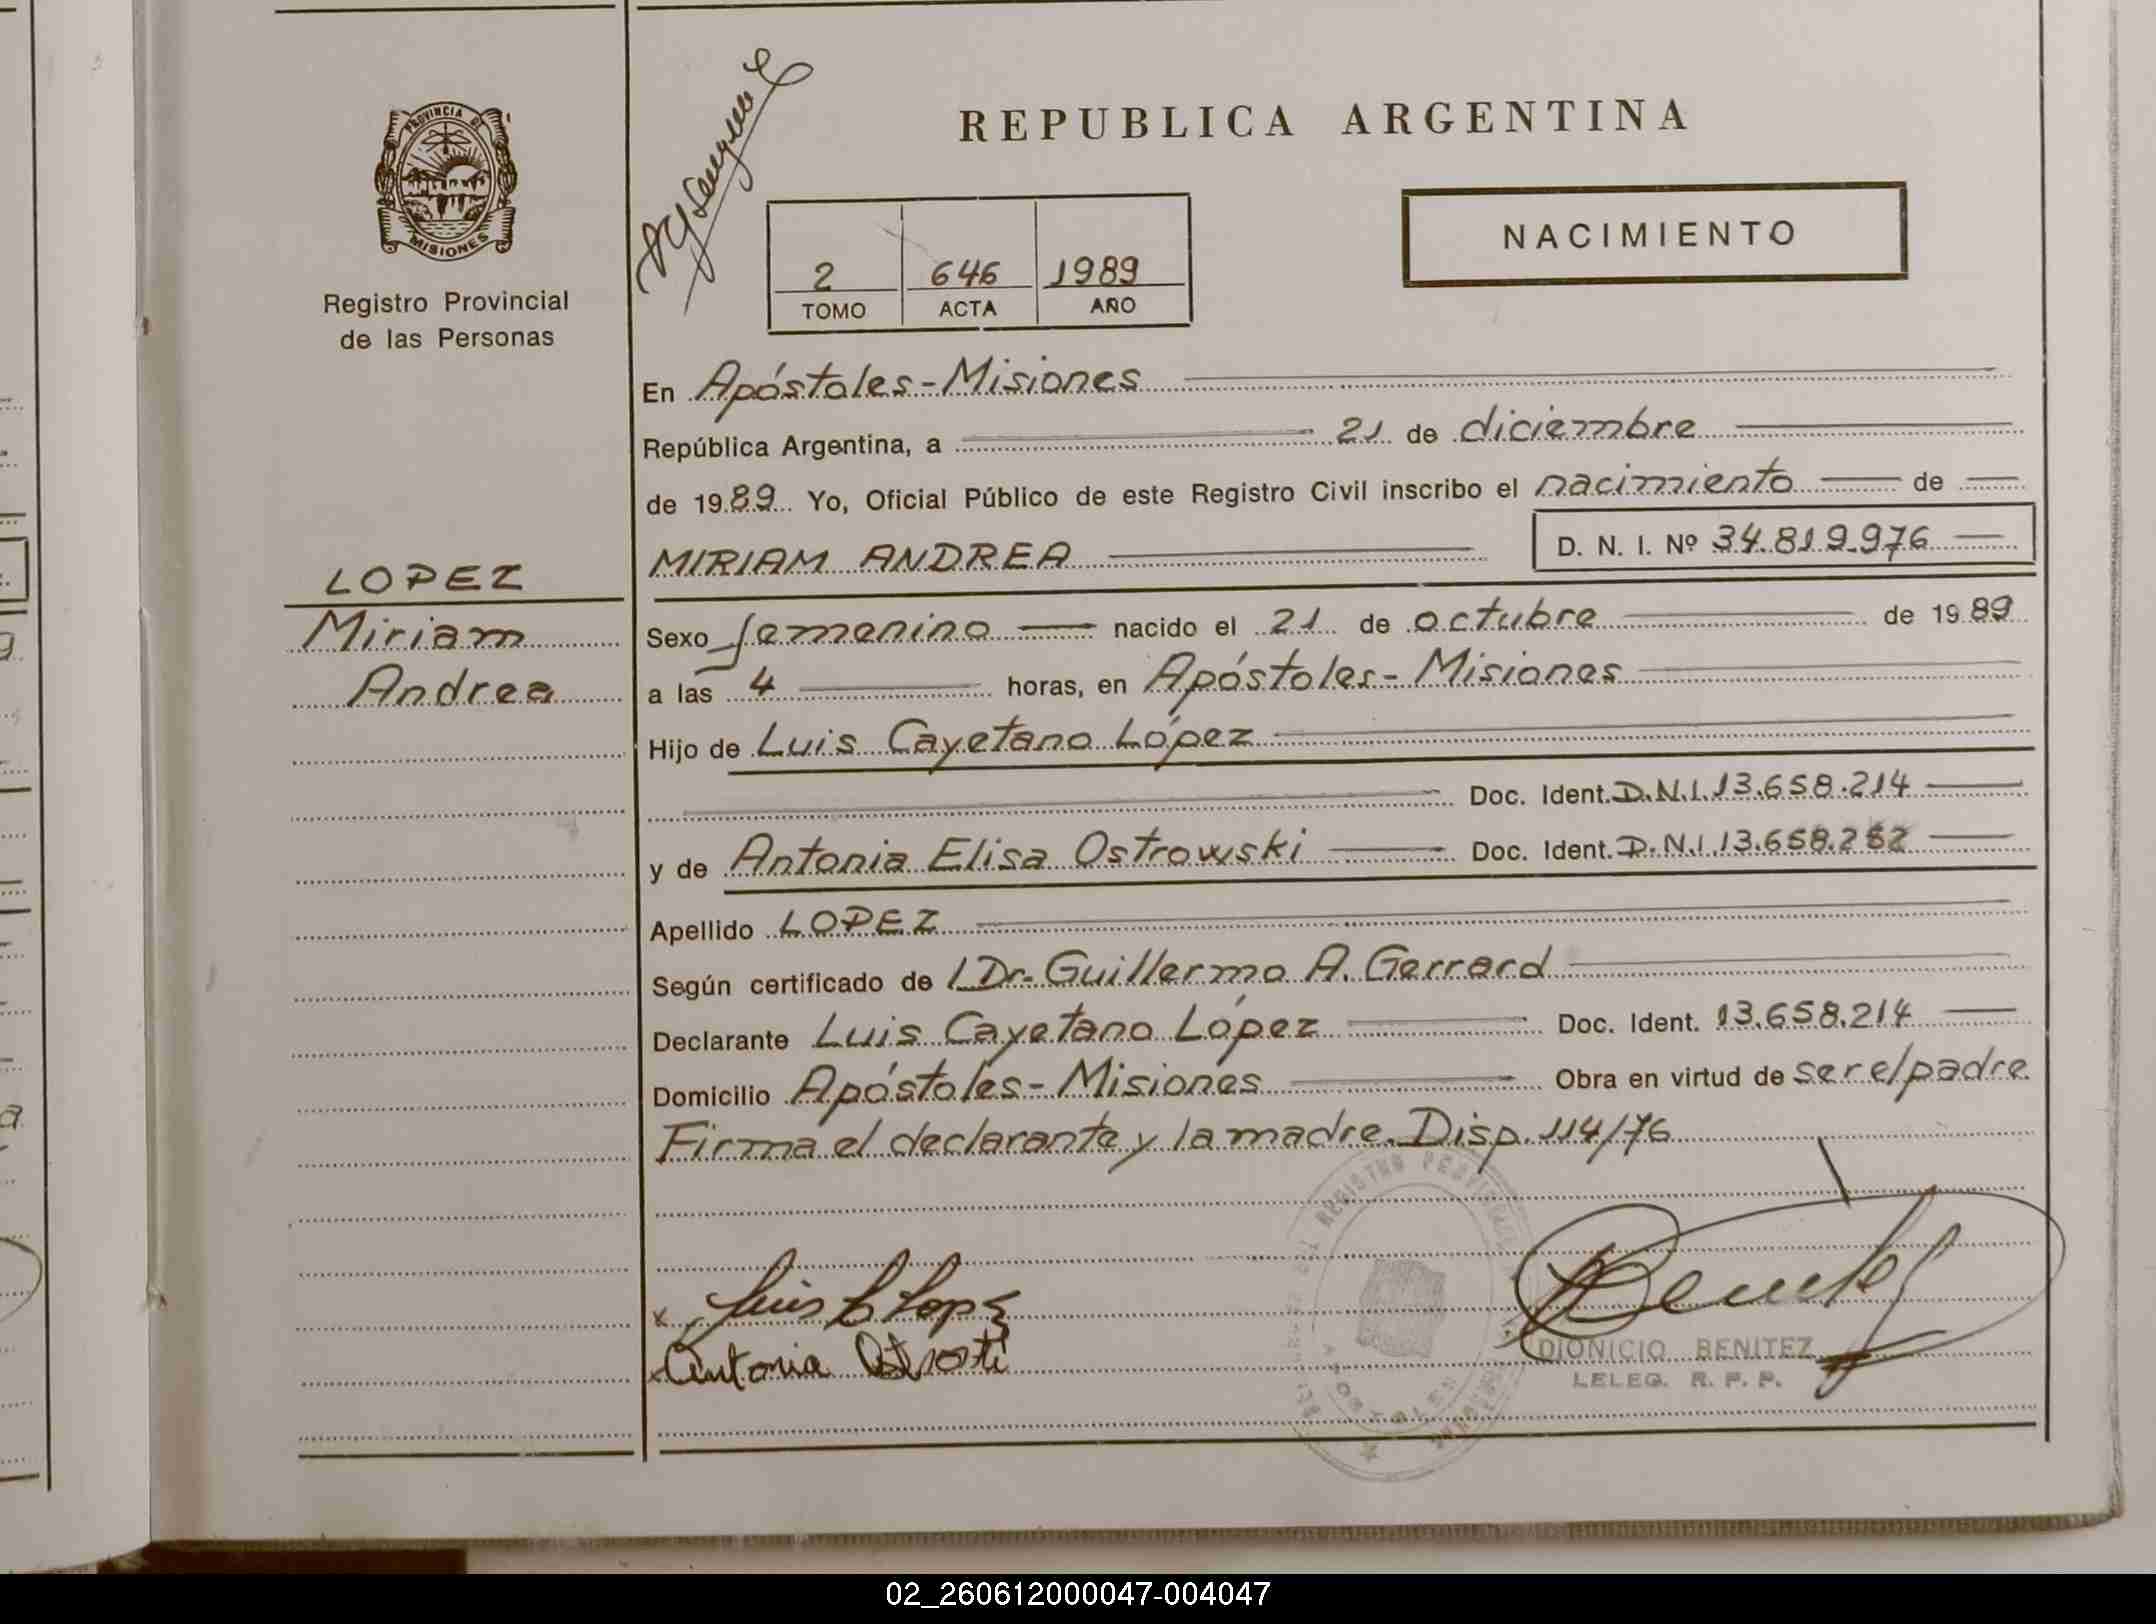 REPUBLICA ARGENTINA
PROVINCIA DE
MISIONES
Registro Provincial
de las Personas
2 646 1989
TOMO ACTA AÑO
NACIMIENTO
En Apóstoles-Misiones
República Argentina, a 21 de diciembre
de 1989 Yo, Oficial Público de este Registro Civil inscribo el nacimiento de
MIRIAM ANDREA D. N. I. Nº 34.819.976
LOPEZ
Miriam
Andrea
Sexo femenino nacido el 21 de octubre de 1989
a las 4 horas, en Apóstoles-Misiones
Hijo de Luis Cayetano López
Doc. Ident. D.N.I.13.658.214
y de Antonia Elisa Ostrowski Doc. Ident. D.N.I.13.658.282
Apellido LOPEZ
Según certificado de l Dr. Guillermo A. Gerrard
Declarante Luis Cayetano López Doc. Ident. 13.658.214
Domicilio Apóstoles-Misiones Obra en virtud de ser el padre
Firma el declarante y la madre. Disp. 114/76
REGISTRO PROVINCIAL
x Luis C Lopez
x Antonia
DIONICIO BENITEZ
LELEG. R. P. P.
02_260612000047-004047